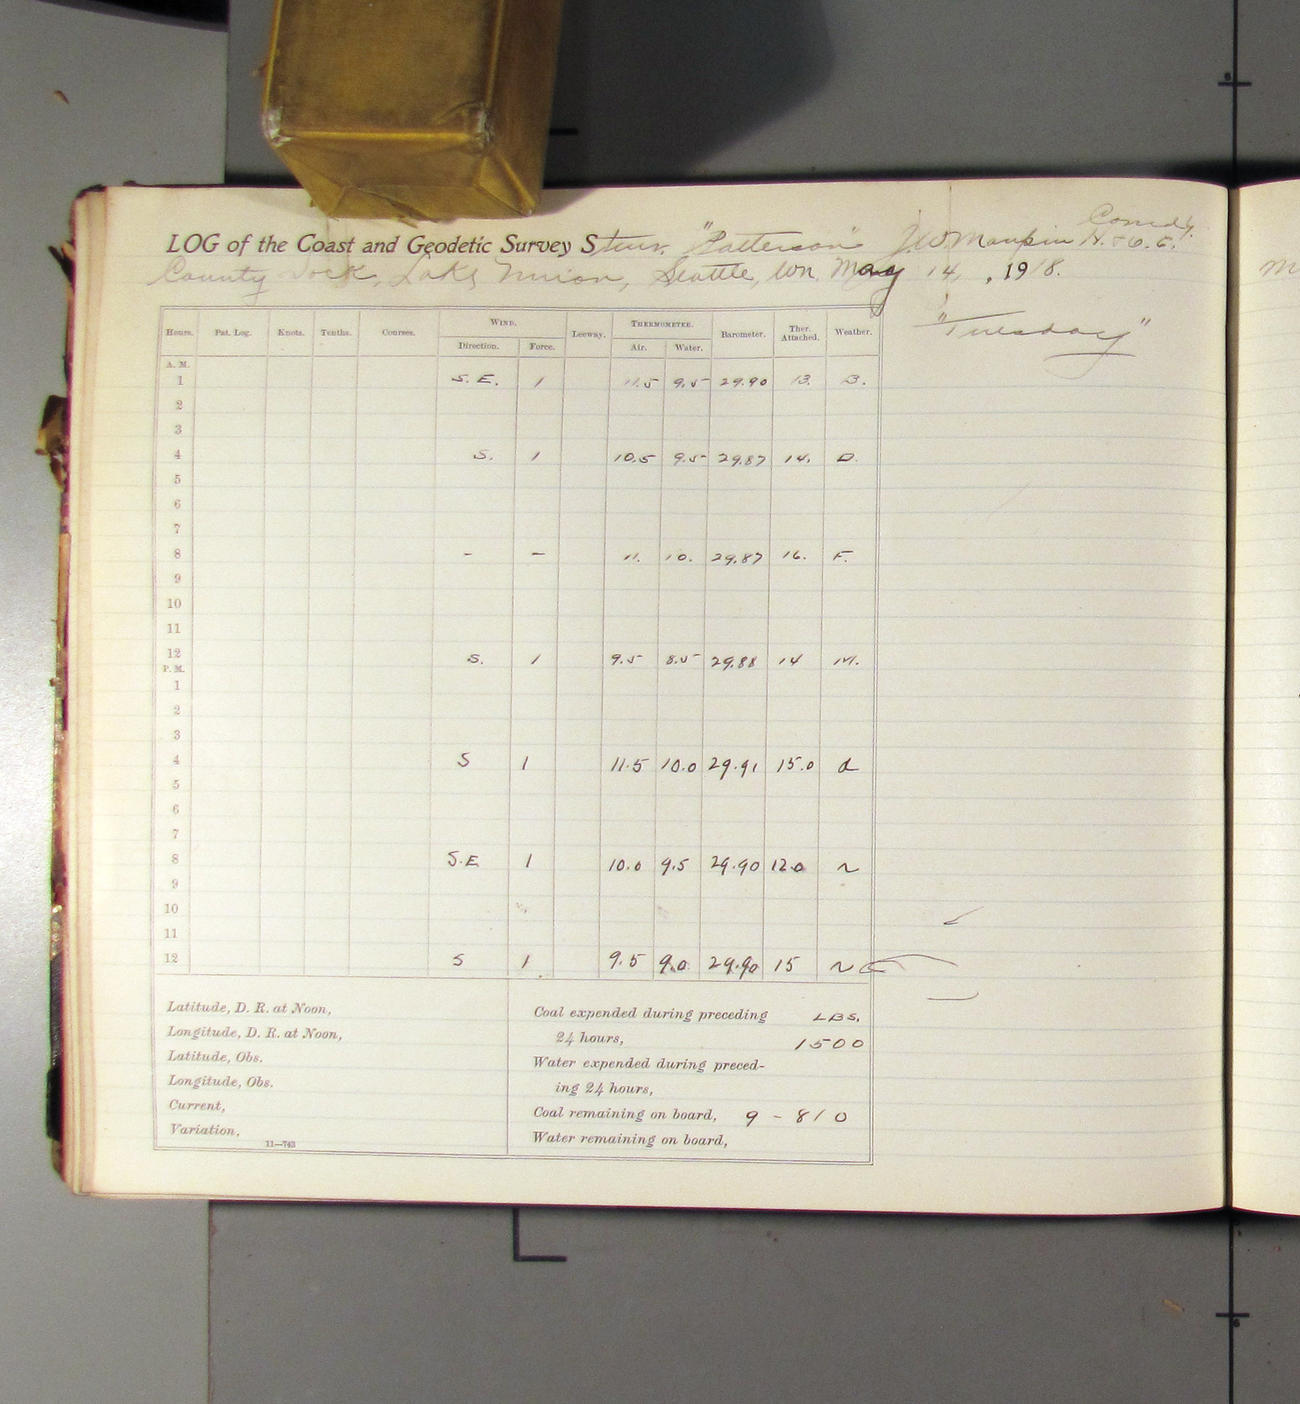 LOG of the Coast and Geodetic Survey Stmr. "Patterson" J.W. Maupin H. & G. E. Comd'g.
County Dock, Lake Union, Seattle, Wn. May 14, 1918.
"Tuesday"
Hours. Pat. Log. Knots. Tenths. Courses. WIND. Leeway. THERMOMETER. Barometer. Ther. Attached. Weather.
Direction. Force. Air. Water.
A. M.
1 S. E. 1 11.5 9.5 29.90 13. B.
2
3
4 S. 1 10.5 9.5 29.87 14. D.
5
6
7
8 - - 11. 10. 29.87 16. F.
9
10
11
12 S. 1 9.5 8.5 29.88 14 M.
P. M.
1
2
3
4 S 1 11.5 10.0 29.91 15.0 d
5
6
7
8 S.E 1 10.0 9.5 29.90 12.0 ~
9
10
11
12 S 1 9.5 9.0 29.90 15 ~
Latitude, D. R. at Noon,
Longitude, D. R. at Noon,
Latitude, Obs.
Longitude, Obs.
Current,
Variation,
11—743
Coal expended during preceding LBS.
24 hours, 1500
Water expended during preced-
ing 24 hours,
Coal remaining on board, 9 - 810
Water remaining on board,